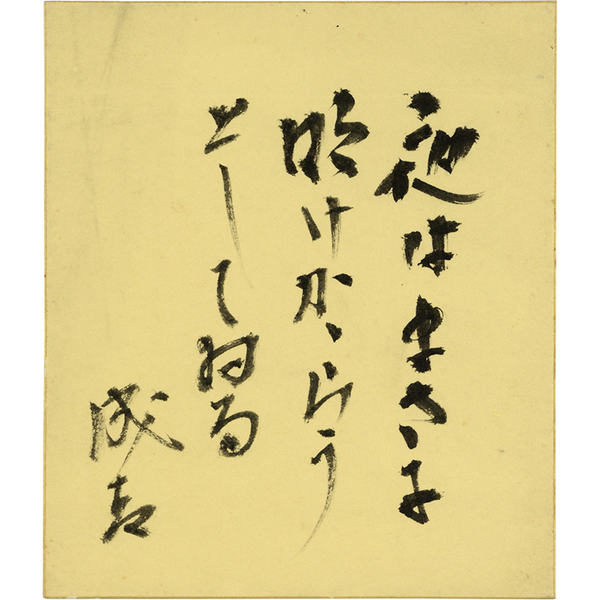 夜はまさに
明けかゝらう
として居る
成吉